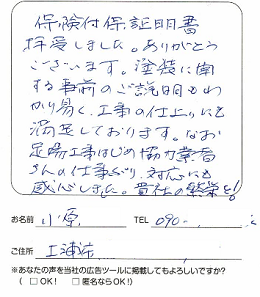 保険付保証明書
拝受しました。ありがとう
ございます。塗装に関
する事前のご説明もわ
かり易く、工事の仕上りにも
満足しております。なお
足場工事はじめ協力業者
さんの仕事ぶり、対応にも
感心しました。貴社の繁栄を!
お名前 小原 TEL 090-
ご住所 土浦市
※あなたの声を当社の広告ツールに掲載してもよろしいですか?
( □OK! □匿名ならOK! )